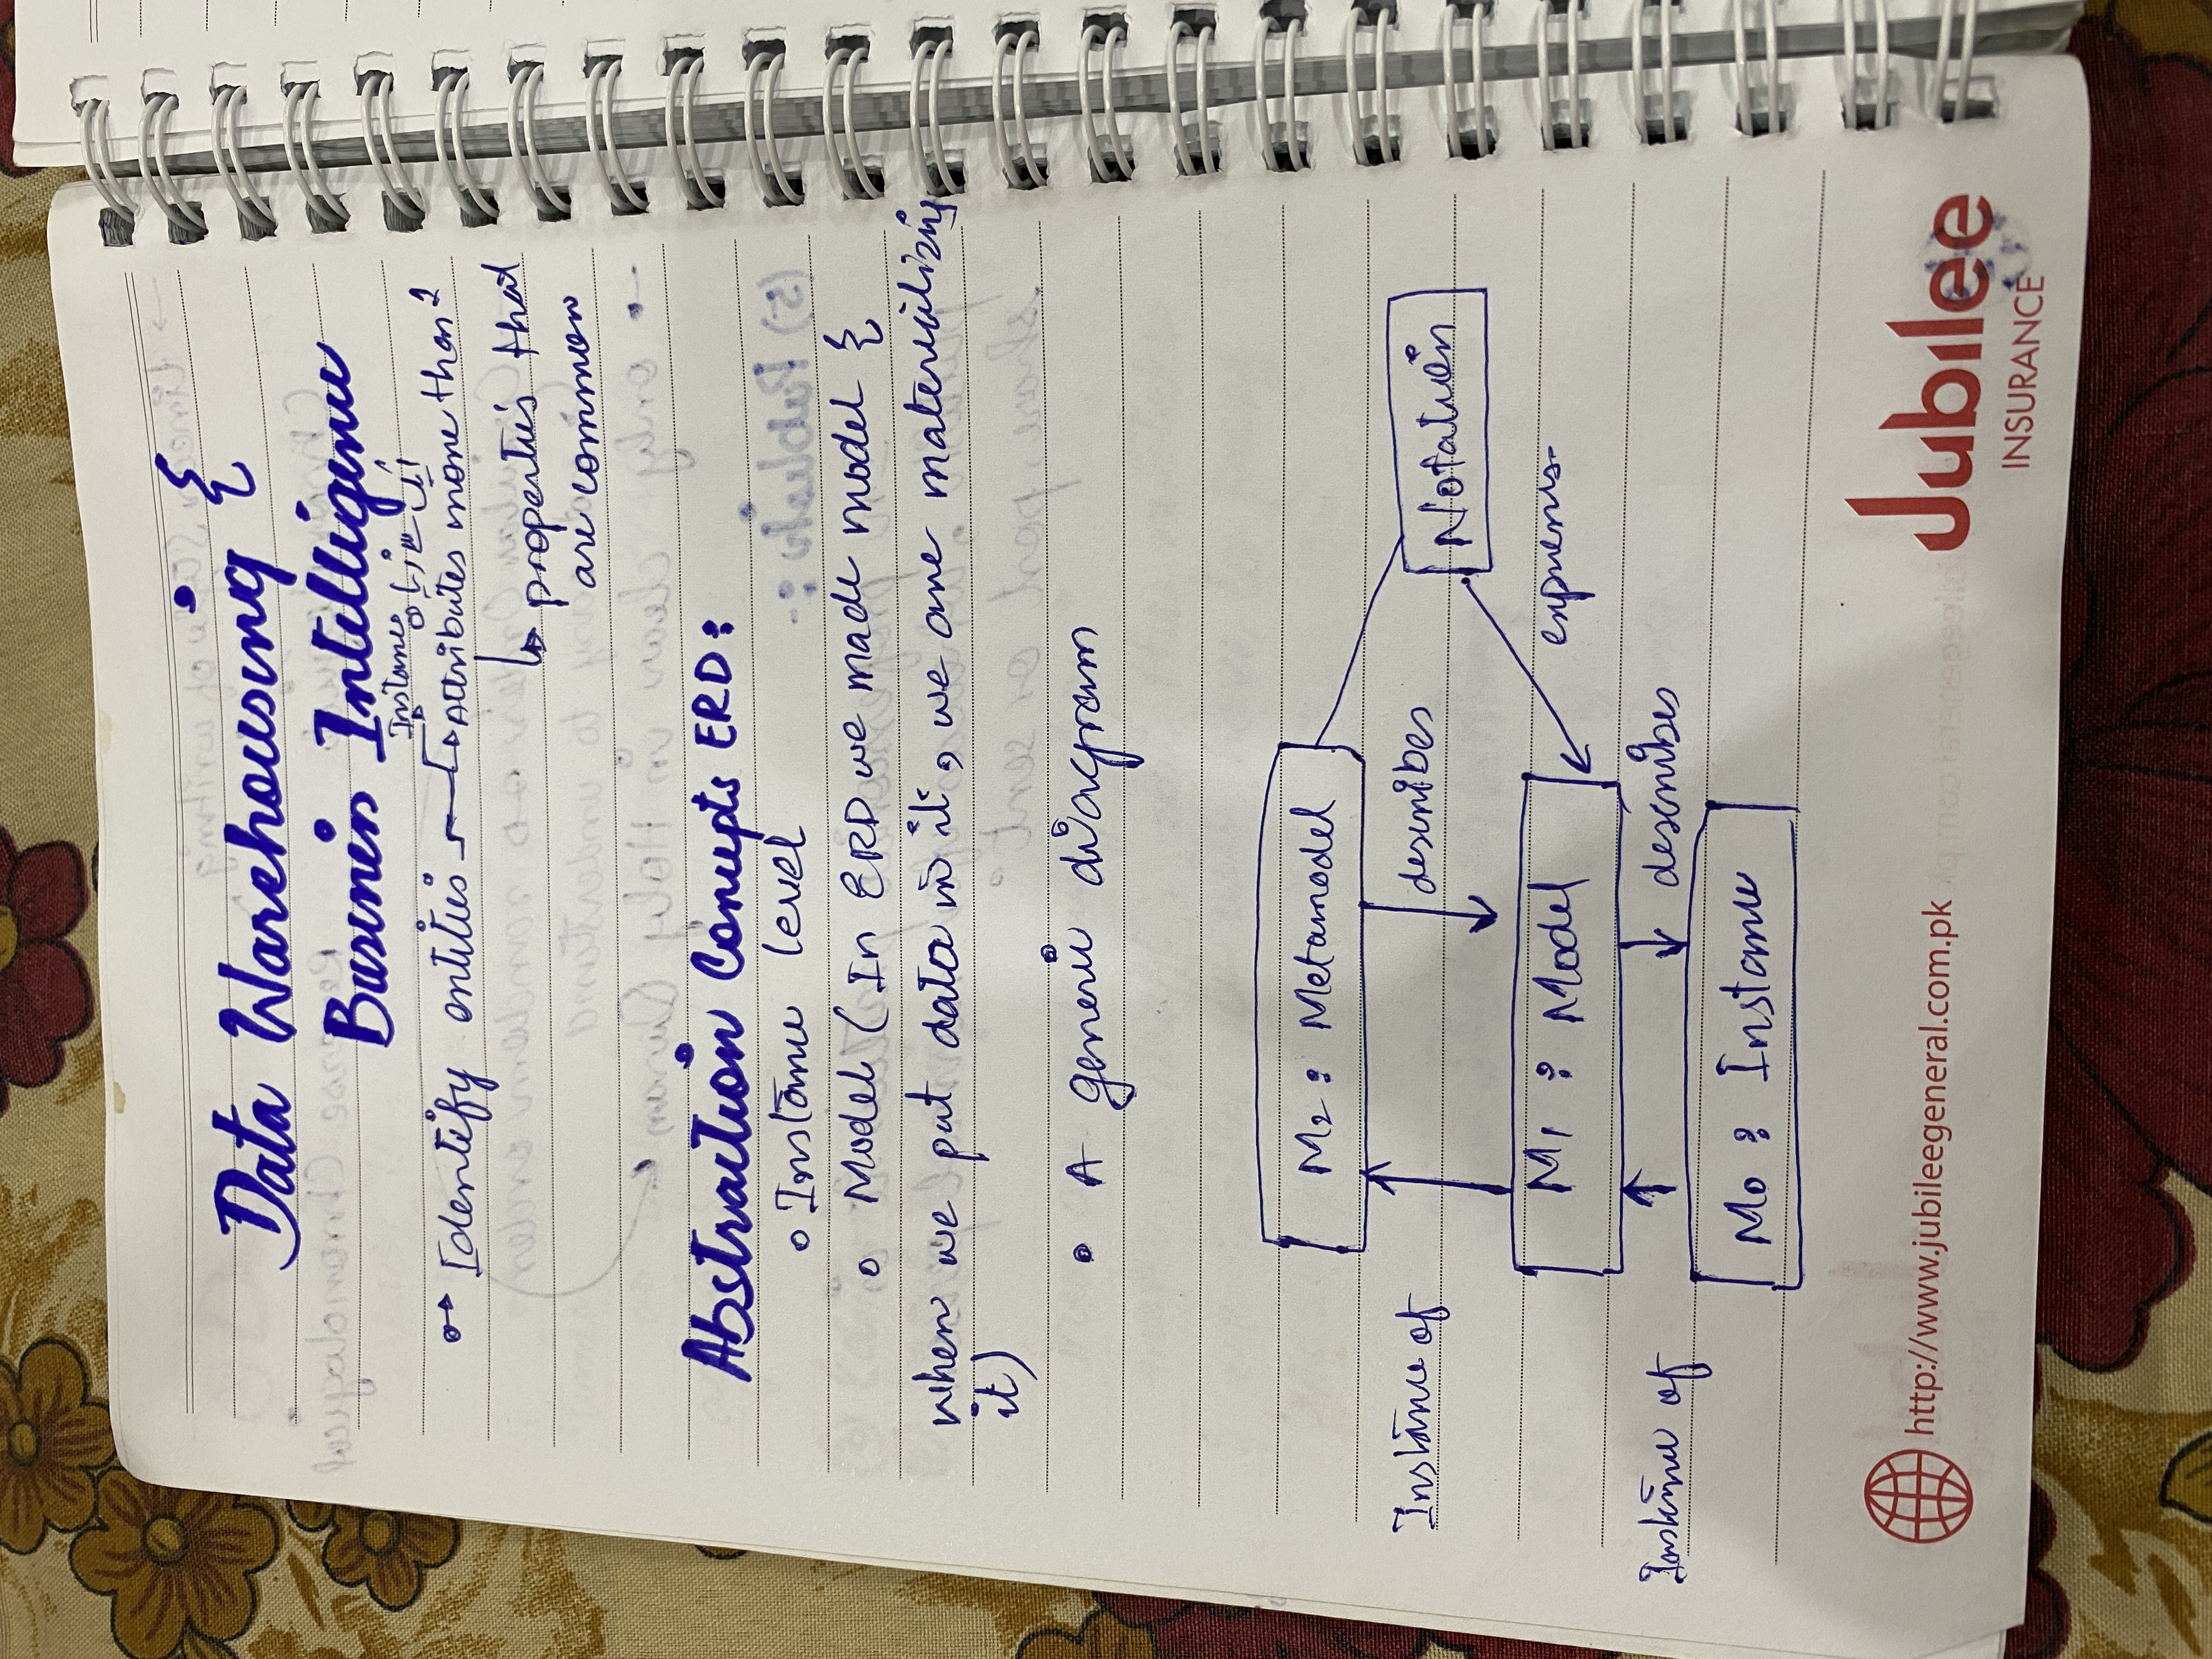 Data Warehousing &
Business Intelligence
Instance
Identify entities
Attributes more than 2
properties that
are common
Abstraction Concepts ERD:
Instance level
Model (In ERD we made model &
when we put data in it, we are materializing
it)
A generic diagram
M2 : Metamodel
Instance of
describes
Notation
M1 : Model
expresses
Instance of
describes
M0 : Instance
http://www.jubileegeneral.com.pk
Jubilee
INSURANCE